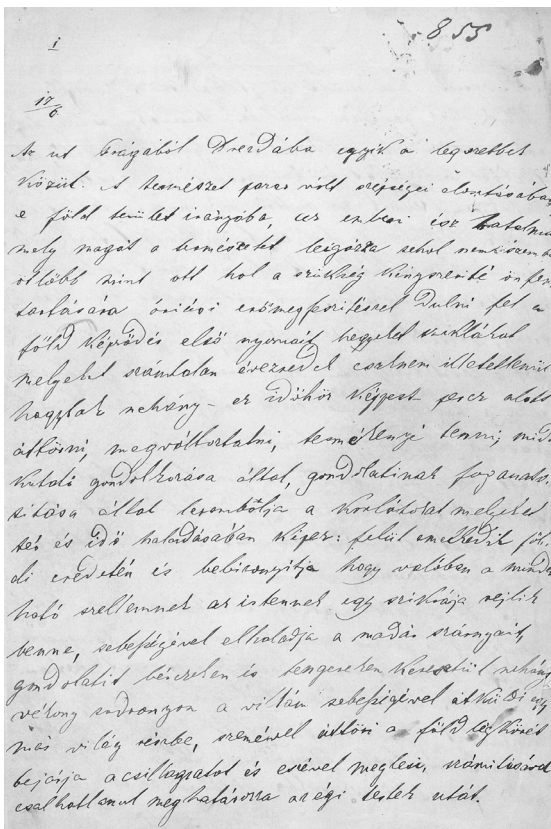 855
1
17/6
Az ut Prágából Drezdába egyik a legszebbek
közül. A természet pazar volt szépségei elosztásában
e föld terület irányába, az emberi ész hatalma
mely magát a természetet leigázza sehol nem szembe
ötlőbb mint ott hol a szükség kényszerité önfen
tartására óriási erőmegfeszitéssel Dulni fel a
föld képződés első nyomait, hegyeket sziklákat
melyeket számtalan évezredek illetetlenül
hagytak nehány – ez időhöz képpest percz alatt
áttörni, megváltoztatni, termékenyé tenni; midő
kutató gondolkozása által, gondolatinak foganato-
sitása által lerombolja a korlátokat melyeket
tér és idő haladásában képez: felül emelkedik föl-
di eredetén és bebizonyitja hogy valóban a minden
ható szellemnek az istennek egy szikrája rejlik
benne, sebességével elhaladja a madár szárnyait,
gondolatit bérczeken és tengereken keresztül nehány
vékony sodronyon a villám sebességével átküldi egy
más világ részbe, szemével áttöri a föld légkörét
bejárja a csillagzatot és eszével meglesi, számitásával
csalhatlanul meghatározza az égi testek utát.